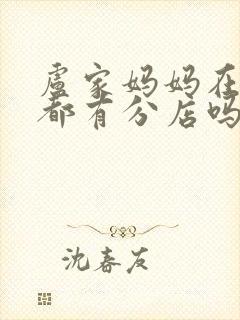 卢家妈妈在
都有分店吗
沈春友